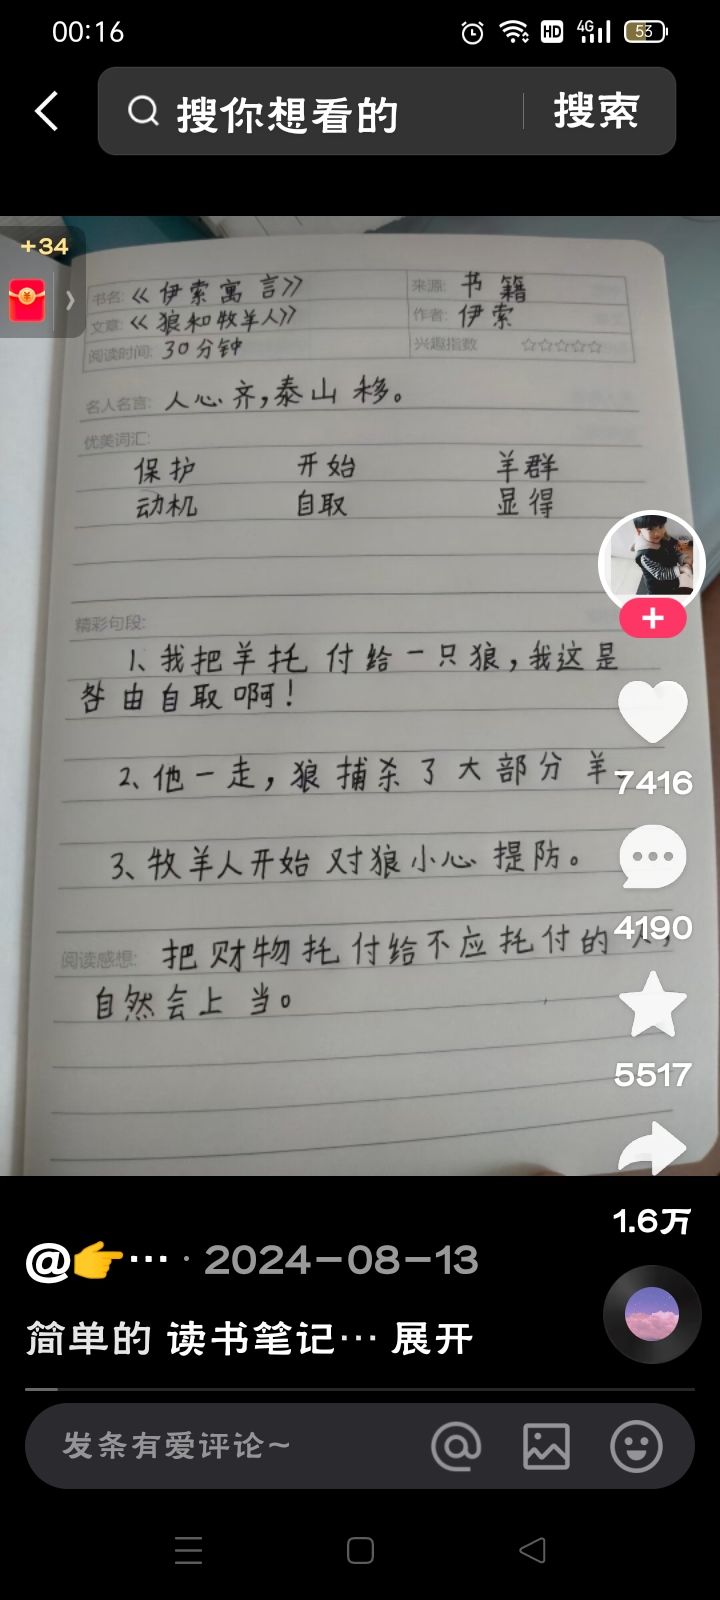 00:16
HD 4G 53
搜你想看的 搜索
+34
书名:《伊索寓言》 来源: 书籍
文章:《狼和牧羊人》 作者: 伊索
阅读时间: 30分钟 兴趣指数 ☆☆☆☆☆
名人名言: 人心齐,泰山移。
优美词汇:
保护 开始 羊群
动机 自取 显得
精彩句段:
1、我把羊托付给一只狼,我这是
咎由自取啊!
2、他一走,狼捕杀了大部分羊
7416
3、牧羊人开始对狼小心提防。
4190
阅读感想: 把财物托付给不应托付的人,
自然会上当。
5517
1.6万
@👉… · 2024-08-13
简单的 读书笔记… 展开
发条有爱评论~